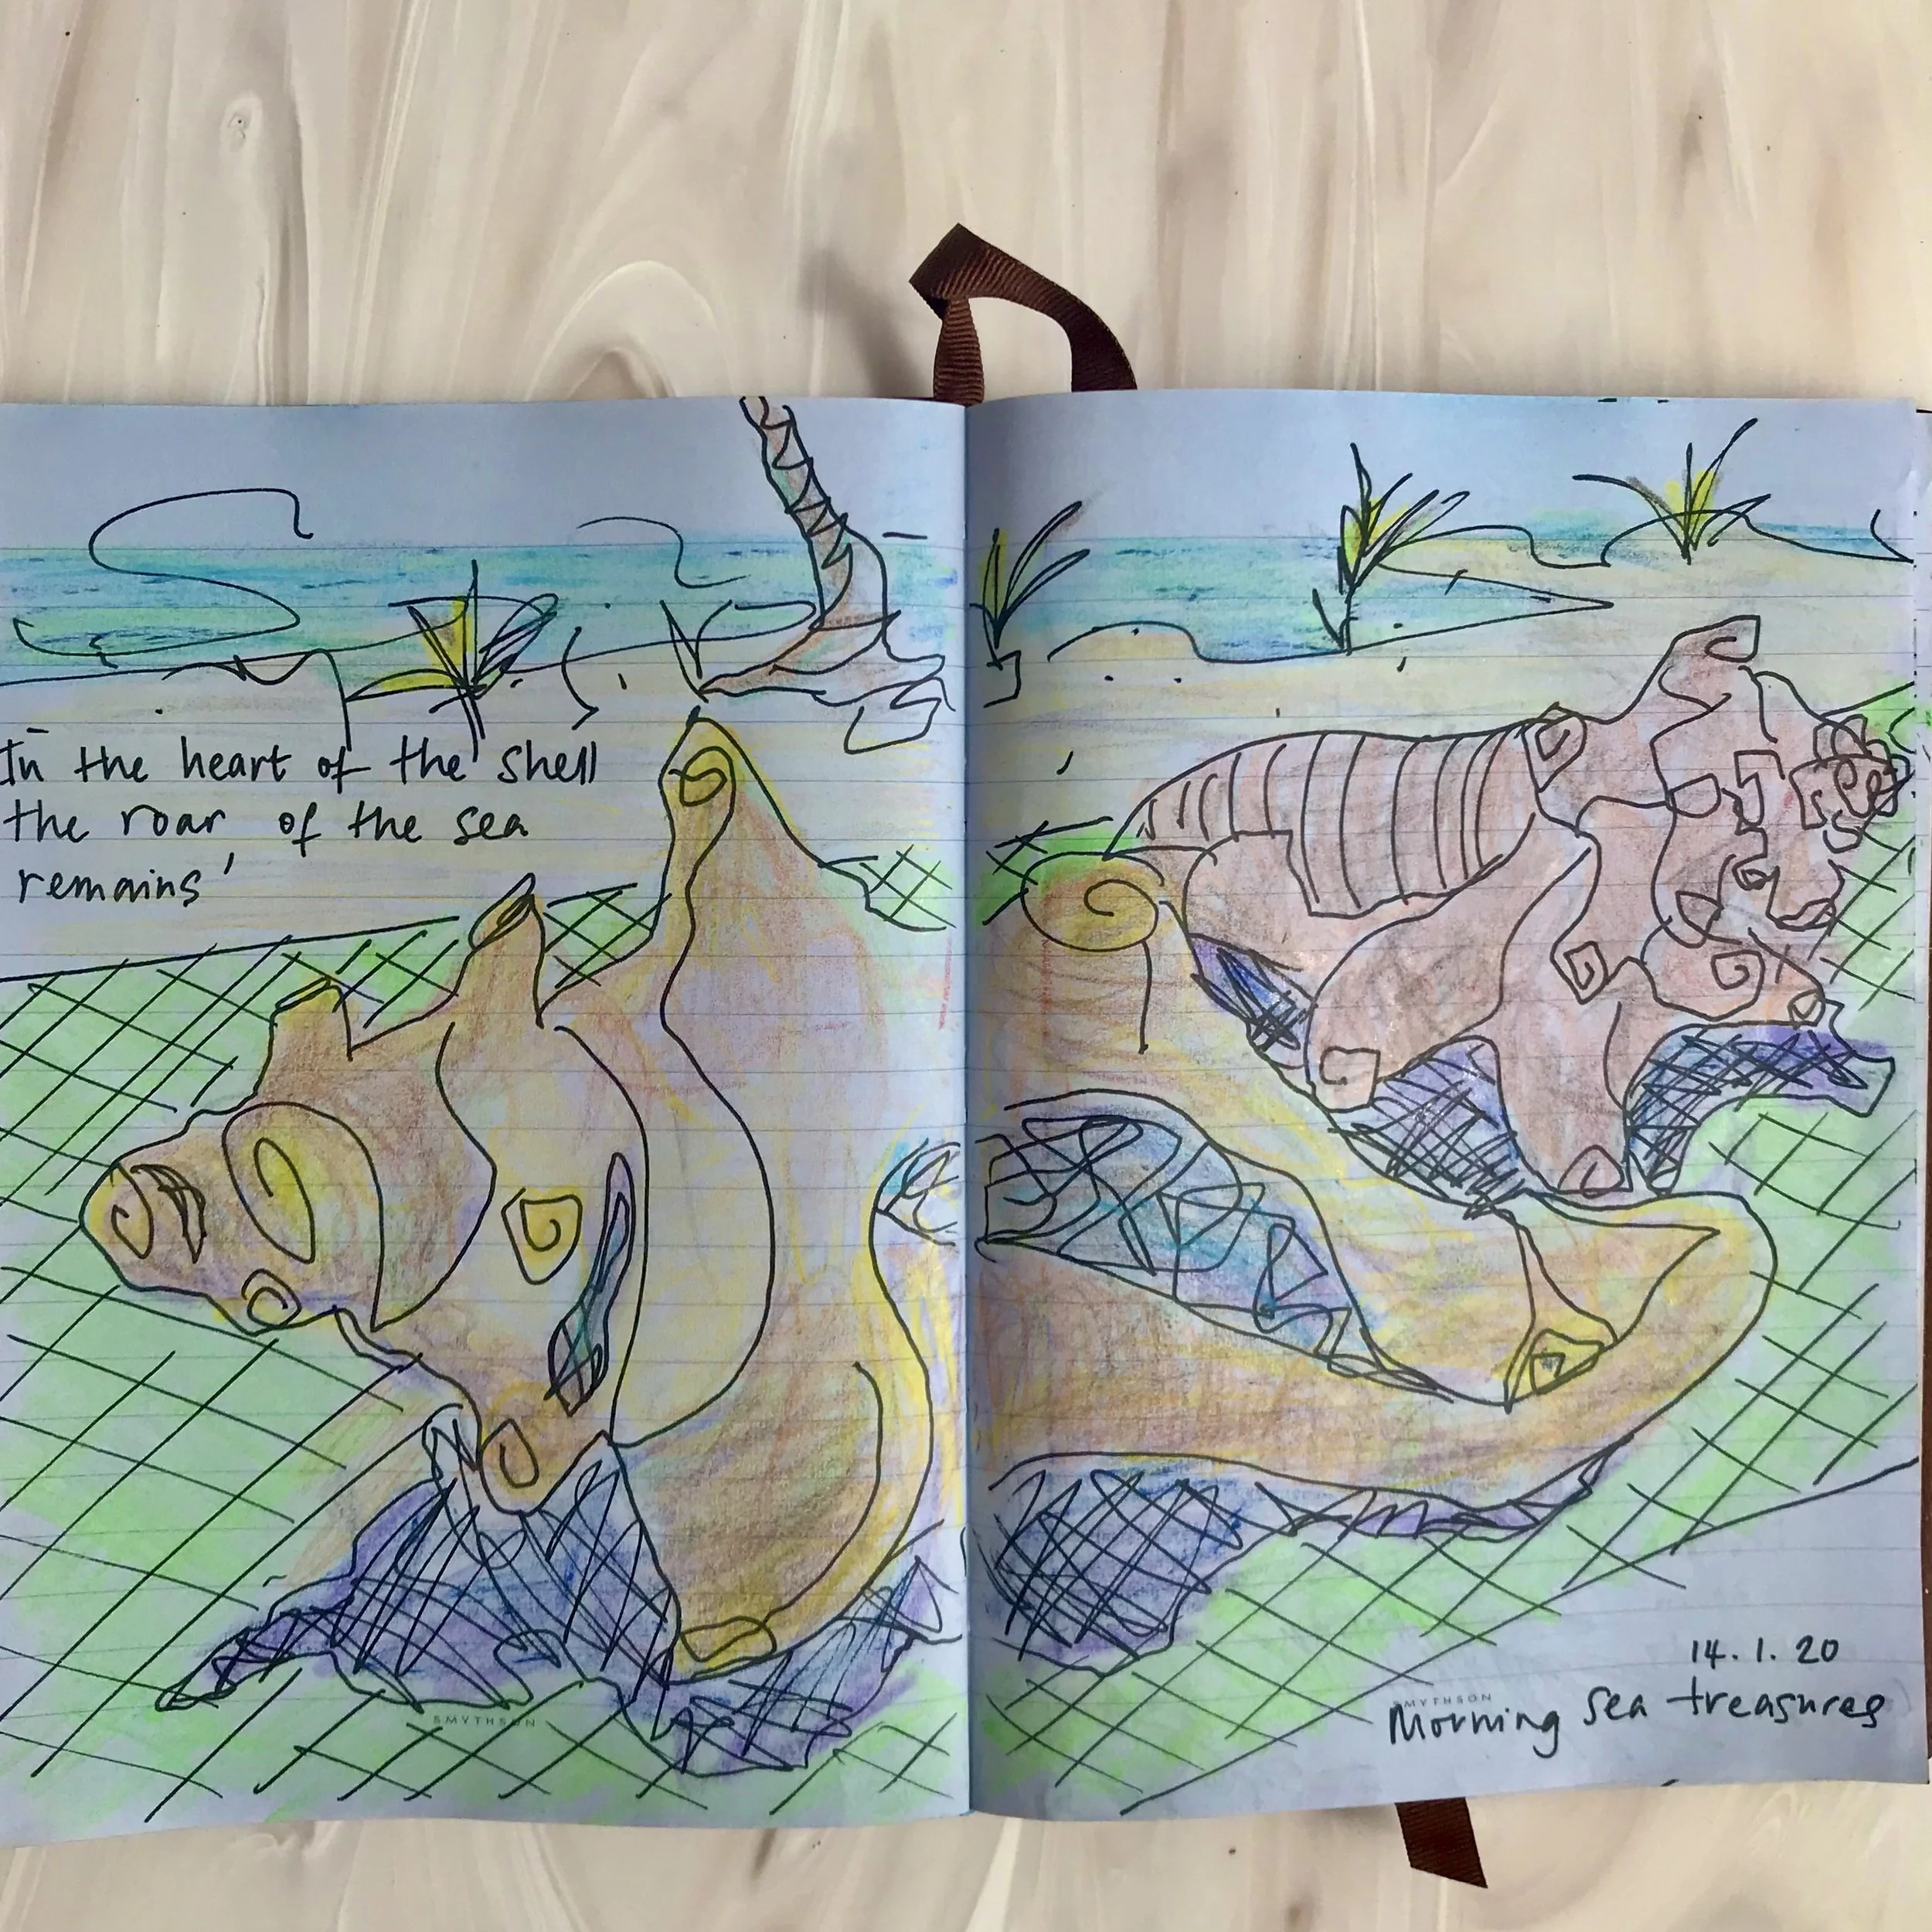 In the heart of the shell
the roar of the sea
remains'
SMYTHSON
14.1.20
SMYTHSON
Morning sea treasures